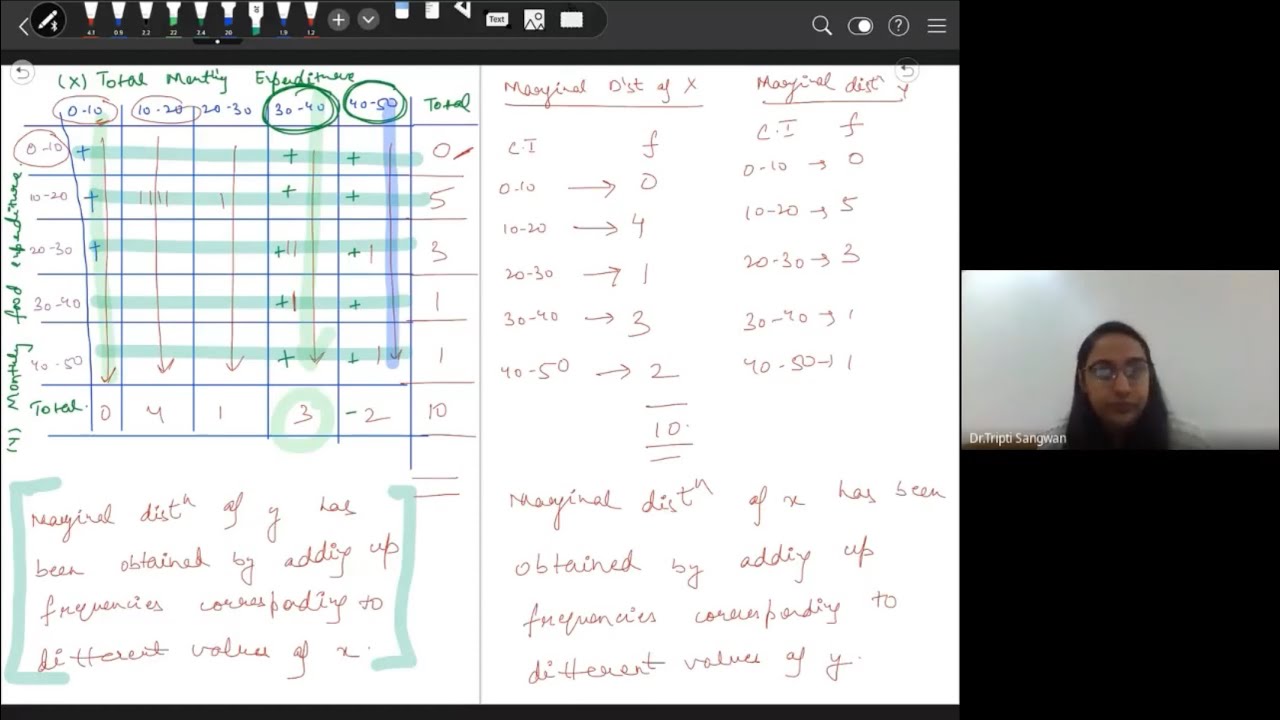 4.1 0.9 2.2 22 2.4 20 1.9 1.2
Text
(X) Total Monthly Expenditure
0-10 10-20 20-30 30-40 40-50 Total
(Y) Monthly food expenditure
0-10 + + + 0
10-20 + |||| | + + 5
20-30 + +|| +| 3
30-40 +| + 1
40-50 + +| 1
Total 0 4 1 3 -2 10
Marginal distⁿ of y has
been obtained by adding up
frequencies corresponding to
different values of x.
Marginal Dist of X
C.I f
0-10 → 0
10-20 → 4
20-30 → 1
30-40 → 3
40-50 → 2
10.
Marginal distⁿ Y
C.I f
0-10 → 0
10-20 → 5
20-30 → 3
30-40 → 1
40-50 → 1
Marginal distⁿ of x has been
obtained by adding up
frequencies corresponding to
different values of y.
Dr.Tripti Sangwan